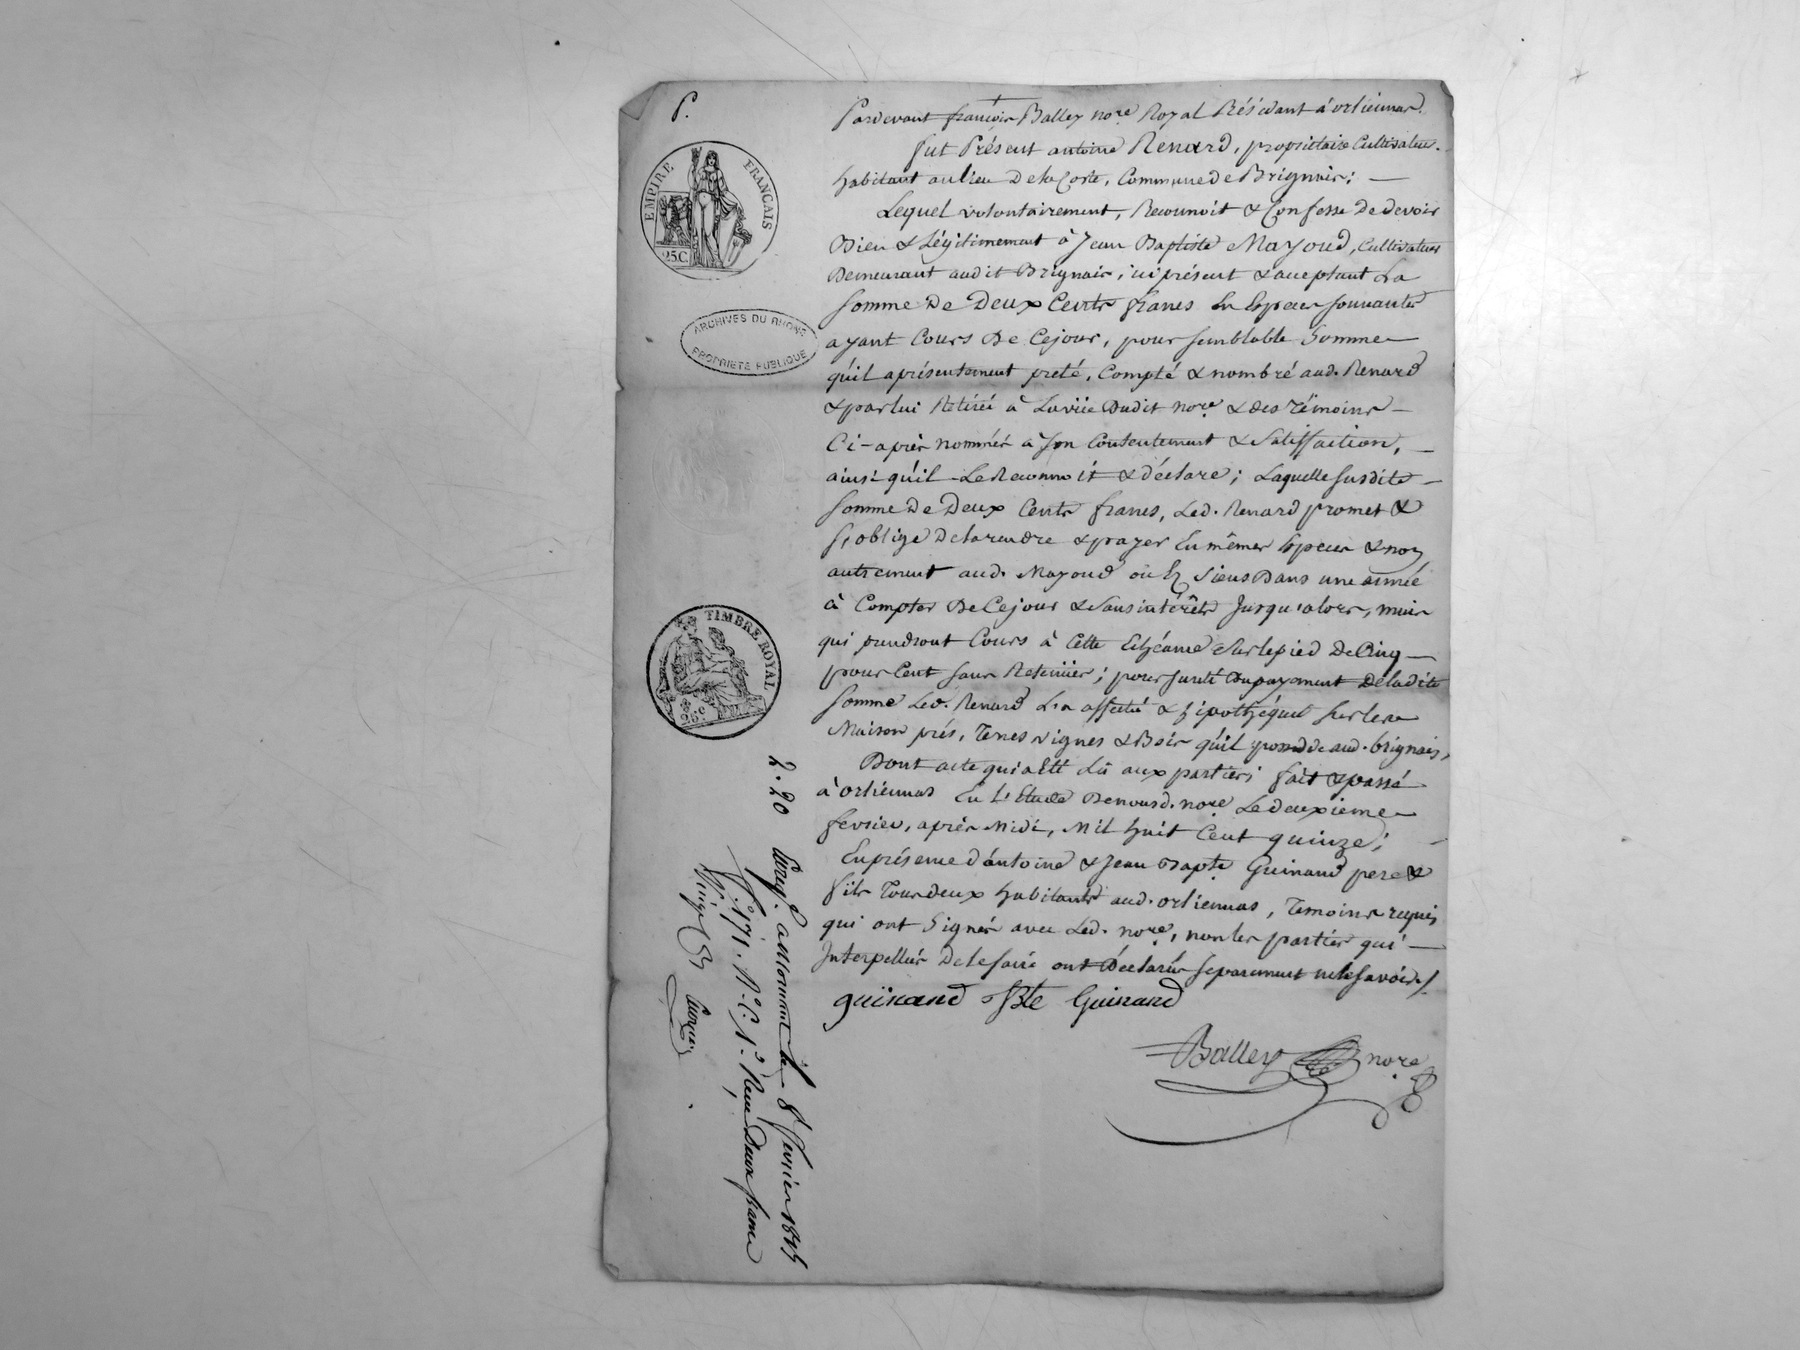 P.
EMPIRE FRANÇAIS
25.C
ARCHIVES DU RHONE
PROPRIETE PUBLIQUE
TIMBRE ROYAL
Pardevant françois Balley nore. Royal Résidant à orliennas.
fut Présent antoine Renard, propriétaire Cultivateur
habitant au lieu De la Coste, Commune de Brignais; —
Lequel volontairement, Reconnoit & Confesse De devoir
Bien & Légitimement à Jean Baptiste Mayoud, Cultivateur
Demeurant audit Brignais, ici présent & acceptant La
Somme De Deux Cents francs En Especes sonnantes
ayant Cours De Cejour, pour semblable Somme
qu'il a présentement preté, Compté & nombré aud. Renard
& par lui Retirée à La vüe Dudit nore. & des Témoins —
Ci-après nommés à son Contentement & Satisffaction, —
ainsi qu'il Le Reconnoit & déclare; Laquelle susdite —
Somme De Deux Cents francs, Led. Renard promet &
s'oblige De la rendre & payer En mêmes Especes & non
autrement aud. Mayoud ou ès Siens Dans une année
à Compter De Cejour & Sans intérêts Jusqu'alors, mais
qui prendront Cours à Cette Echéance Sur le pied De Cinq —
pour Cent sans Retenüe; pour sureté Du payement De ladite
Somme Led. Renard L'a affecté & hipothéqué Sur les
Maison prés, Terres vignes & Bois qu'il possede aud. brignais,
Dont acte qui a Eté Lû aux parties fait & passé
à orliennas En L'Etude De nousd. nore. Le deuxieme
fevrier, après Midi, Mil huit Cent quinze; —
En présence d'antoine & Jean Bapte. Guinand pere &
fils Tous deux habitants aud. orliennas, Temoins requis
qui ont Signés avec Led. nore., non les parties qui —
Interpellés De le faire ont Déclarés séparement ne le savoir /.
guinand JBte Guinand
Balley nore.
2.20 Enregé. à Mornant le 8 fevrier 1815
fo. 171. Ro. C. 1o. Reçu Deux francs